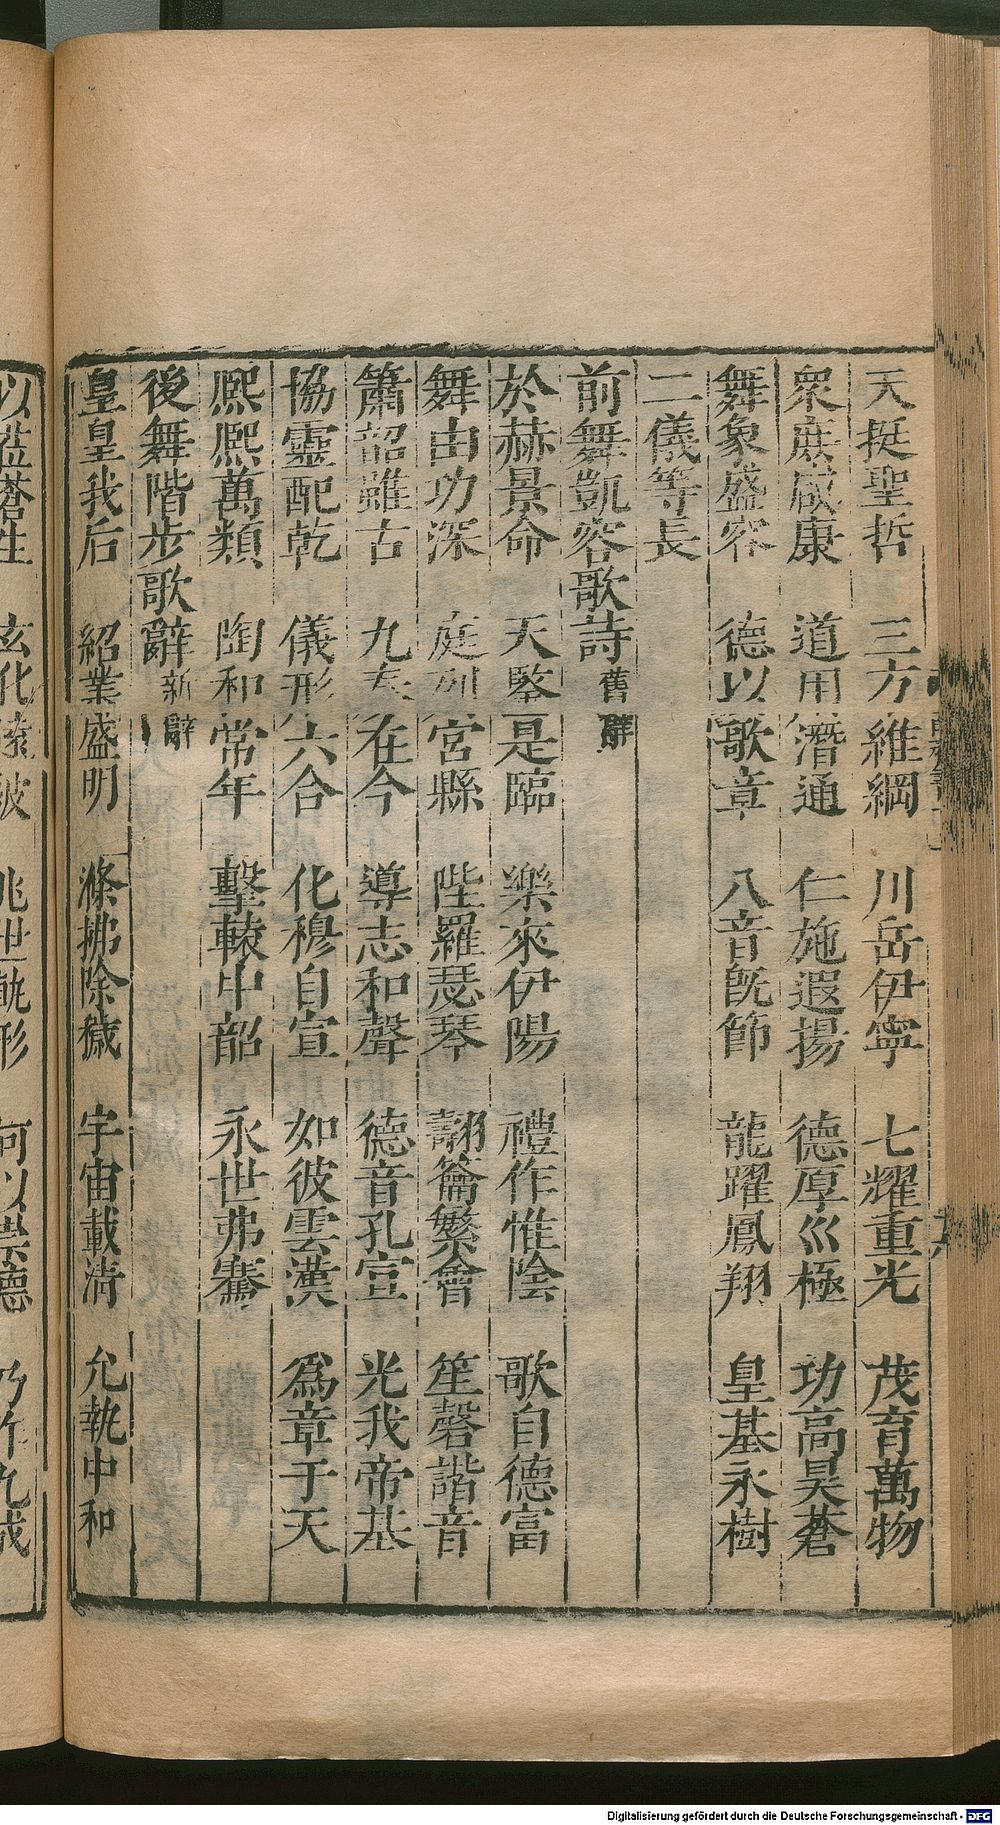 天挺聖哲　三方維綱　川岳伊寧　七耀重光　茂育萬物
衆庶咸康　道用潛通　仁施遐揚　德厚巛極　功高昊蒼
舞象盛容　德以歌章　八音既節　龍躍鳳翔　皇基永樹
二儀等長
前舞凱容歌詩舊辭
於赫景命　天鑒是臨　樂來伊陽　禮作惟陰　歌自德富
舞由功深　庭列宮縣　陛羅瑟琴　翿籥繁會　笙磬諧音
簫韶雖古　九奏在今　導志和聲　德音孔宣　光我帝基
協靈配乾　儀形六合　化穆自宣　如彼雲漢　爲章于天
熙熙萬類　陶和常年　擊轅中韶　永世弗騫
後舞階步歌辭新辭
皇皇我后　紹業盛明　滌拂除穢　宇宙載淸　允執中和
以蒞蒼生　玄化遠被　兆世軌形　何以崇德　乃作九成
Digitalisierung gefördert durch die Deutsche Forschungsgemeinschaft - DFG